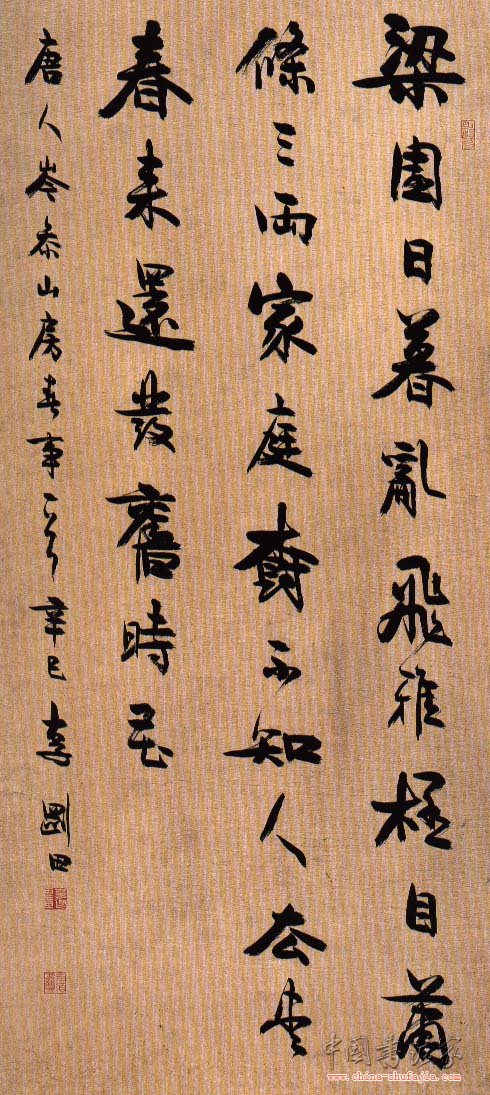 梁園日暮亂飛雅極目蕭
條三兩家庭樹不知人去尽
春来還發舊時花
唐人岑参山房春事一首辛巳李剛田
中國書法家
www.china-shufajia.com